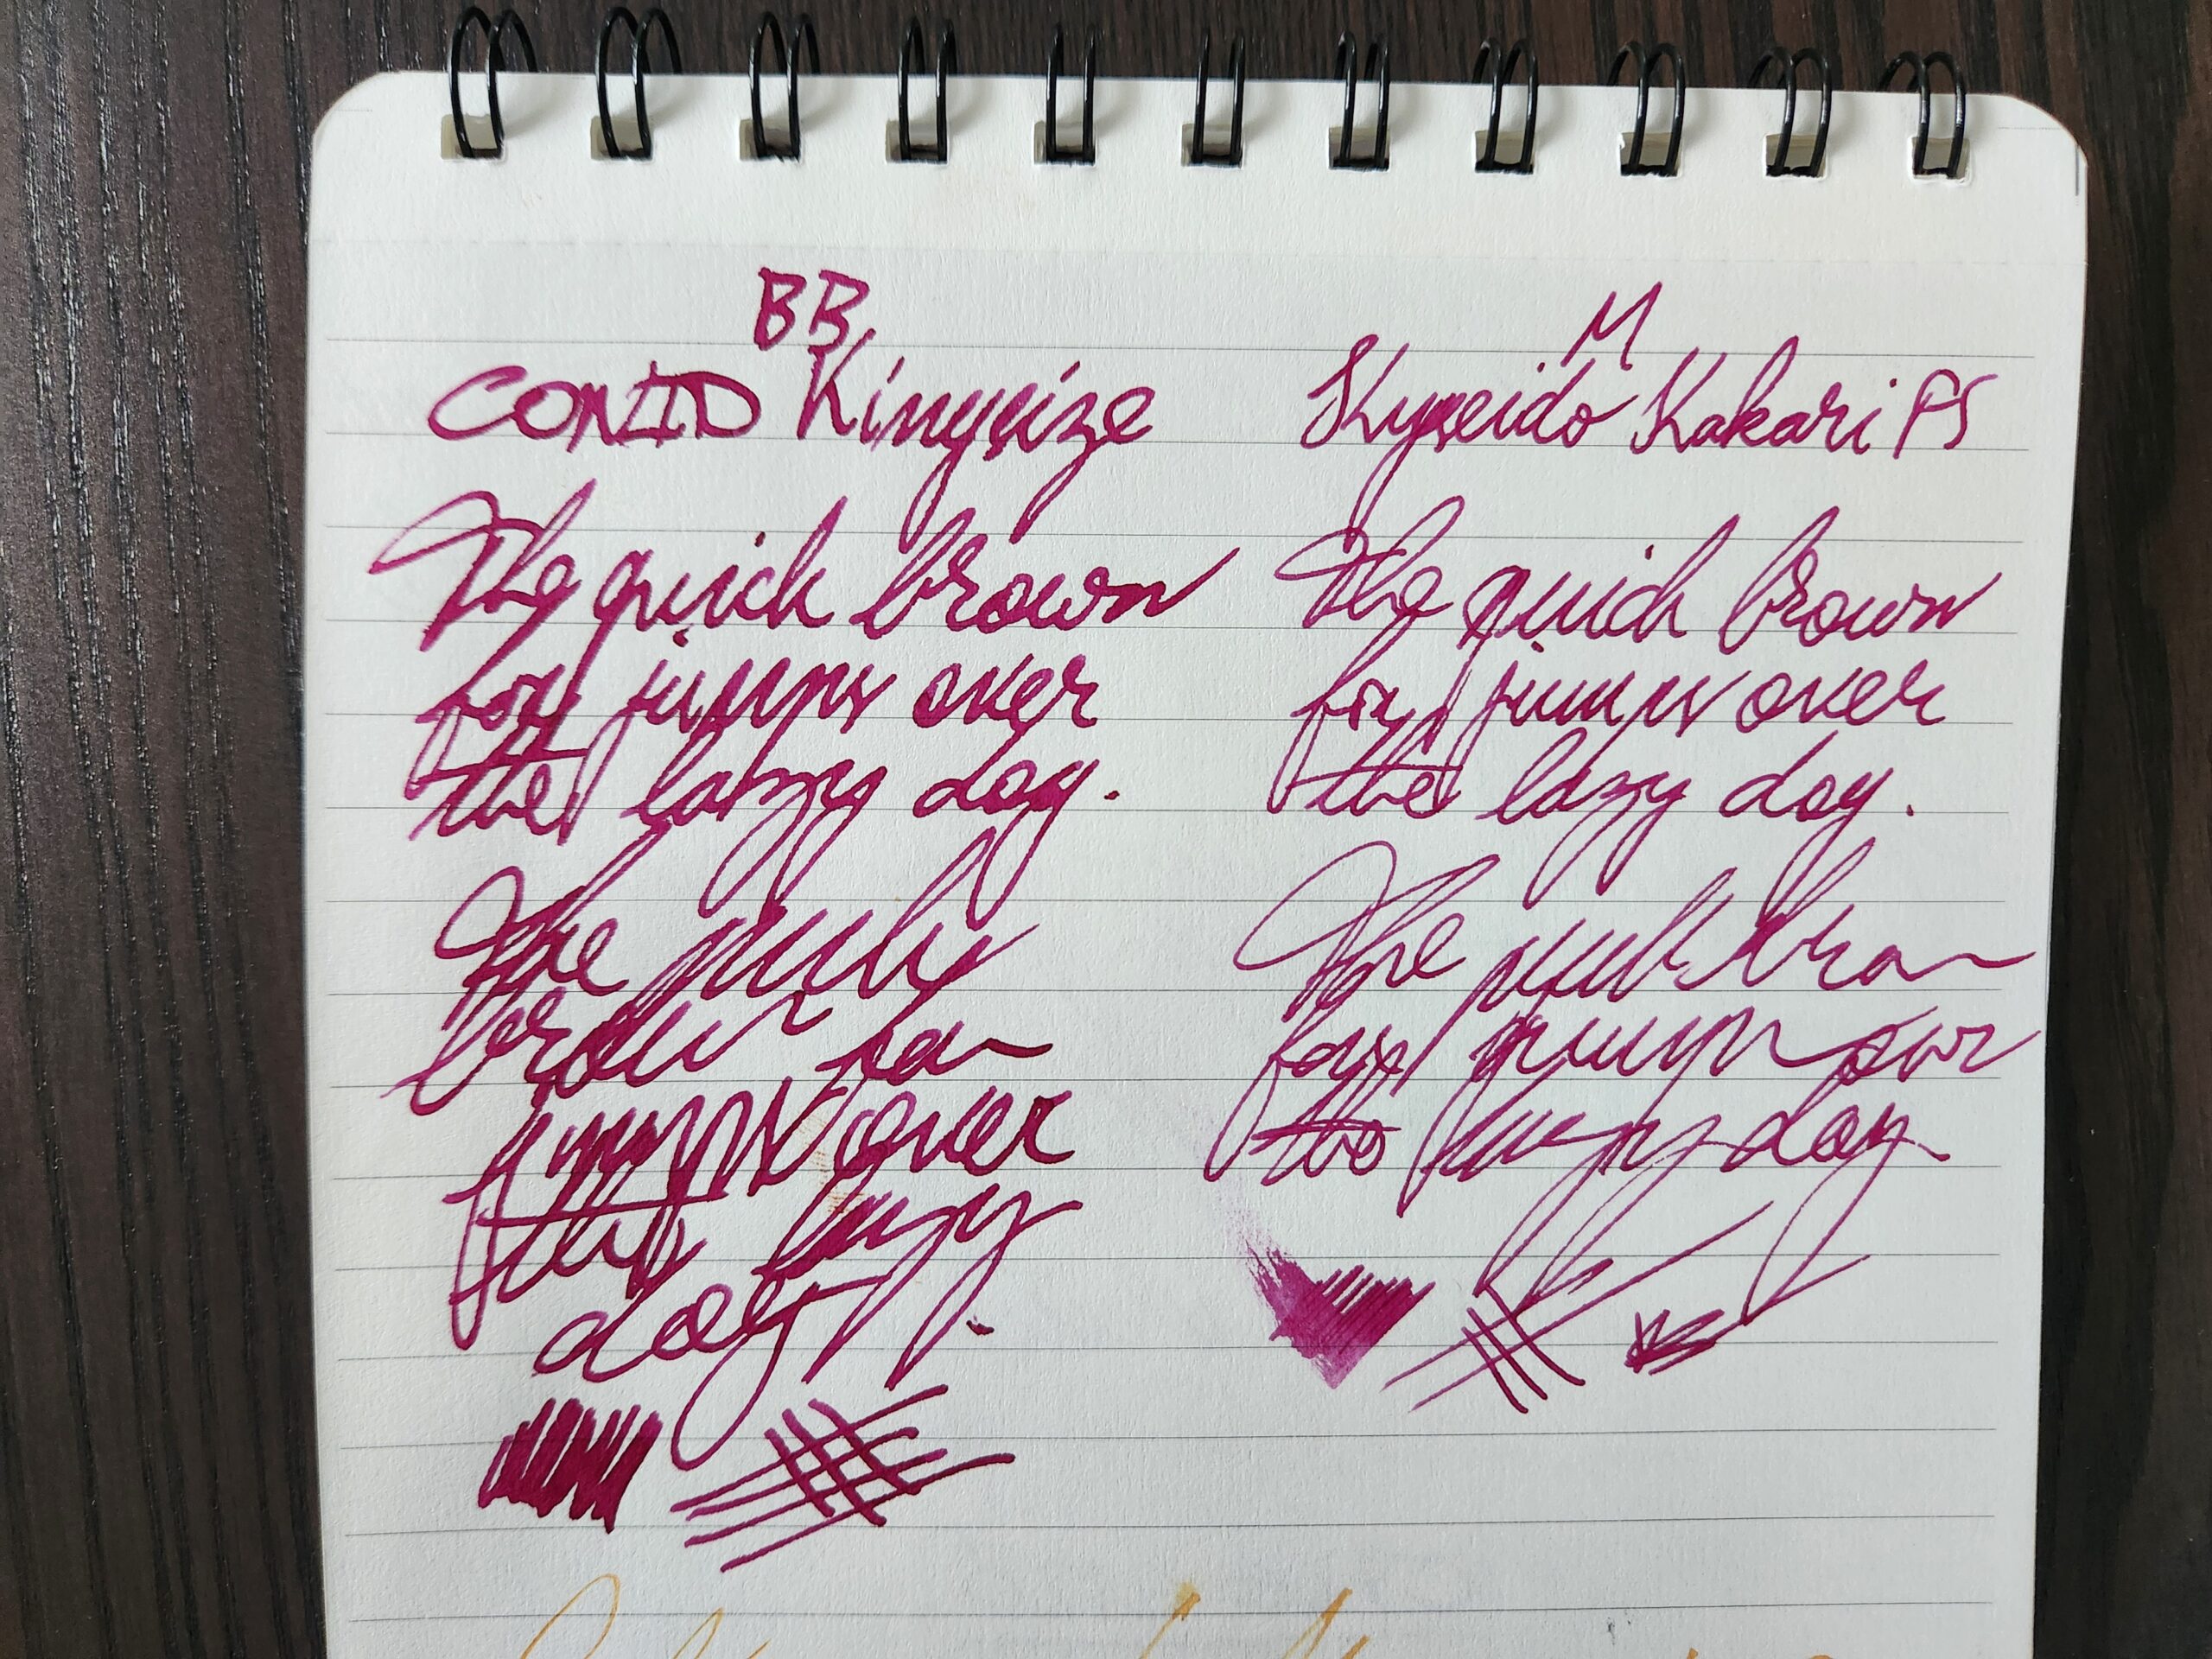 BB
CONID Kingsize
The quick brown
fox jumps over
the lazy dog.
The quick
brown fox
jumps over
the lazy
dog.
M
Kyuseido Kakari PS
The quick brown
fox jumps over
the lazy dog.
The quick brown
fox jumps over
the lazy dog